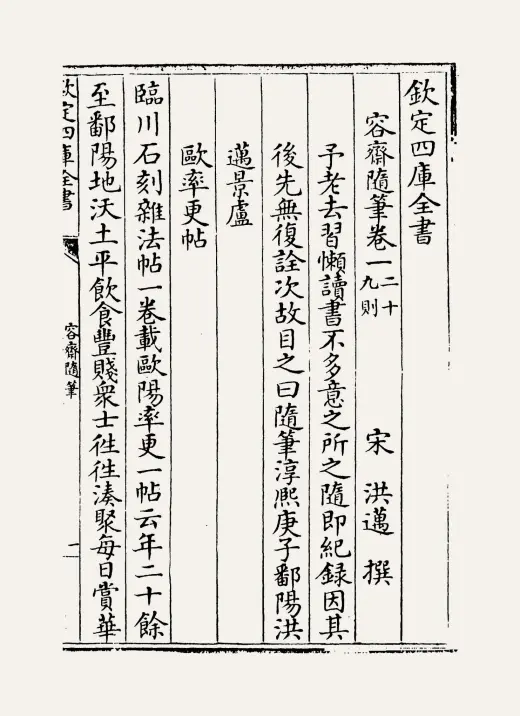 欽定四庫全書
容齋隨筆卷一 二十九則 宋 洪邁 撰
予老去習懶讀書不多意之所之隨即紀録因其
後先無復詮次故目之曰隨筆淳熙庚子鄱陽洪
邁景盧
歐率更帖
臨川石刻雜法帖一卷載歐陽率更一帖云年二十餘
至鄱陽地沃土平飲食豐賤衆士往往湊聚每日賞華
欽定四庫全書
容齋隨筆
一